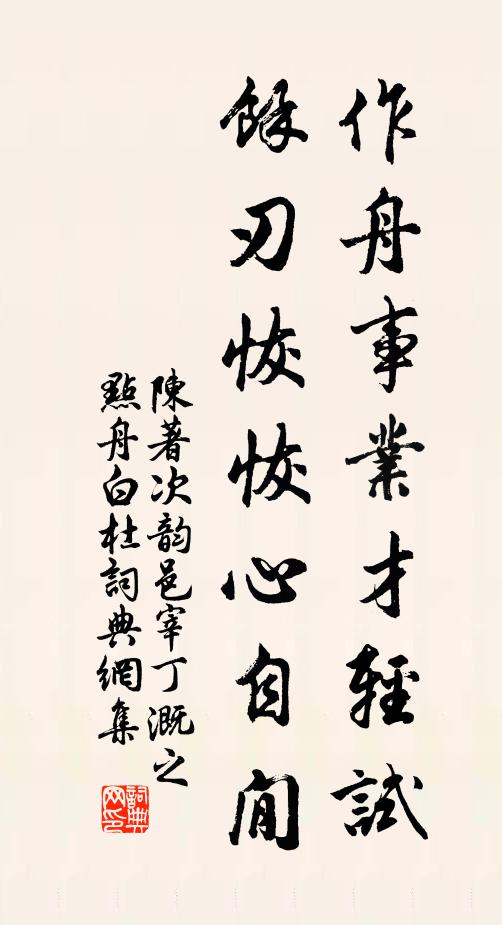 作舟事業才輕試
餘刃恢恢心自閒
陳著次韵邑宰丁溉之
點舟白杜詞典網集
詞典网印